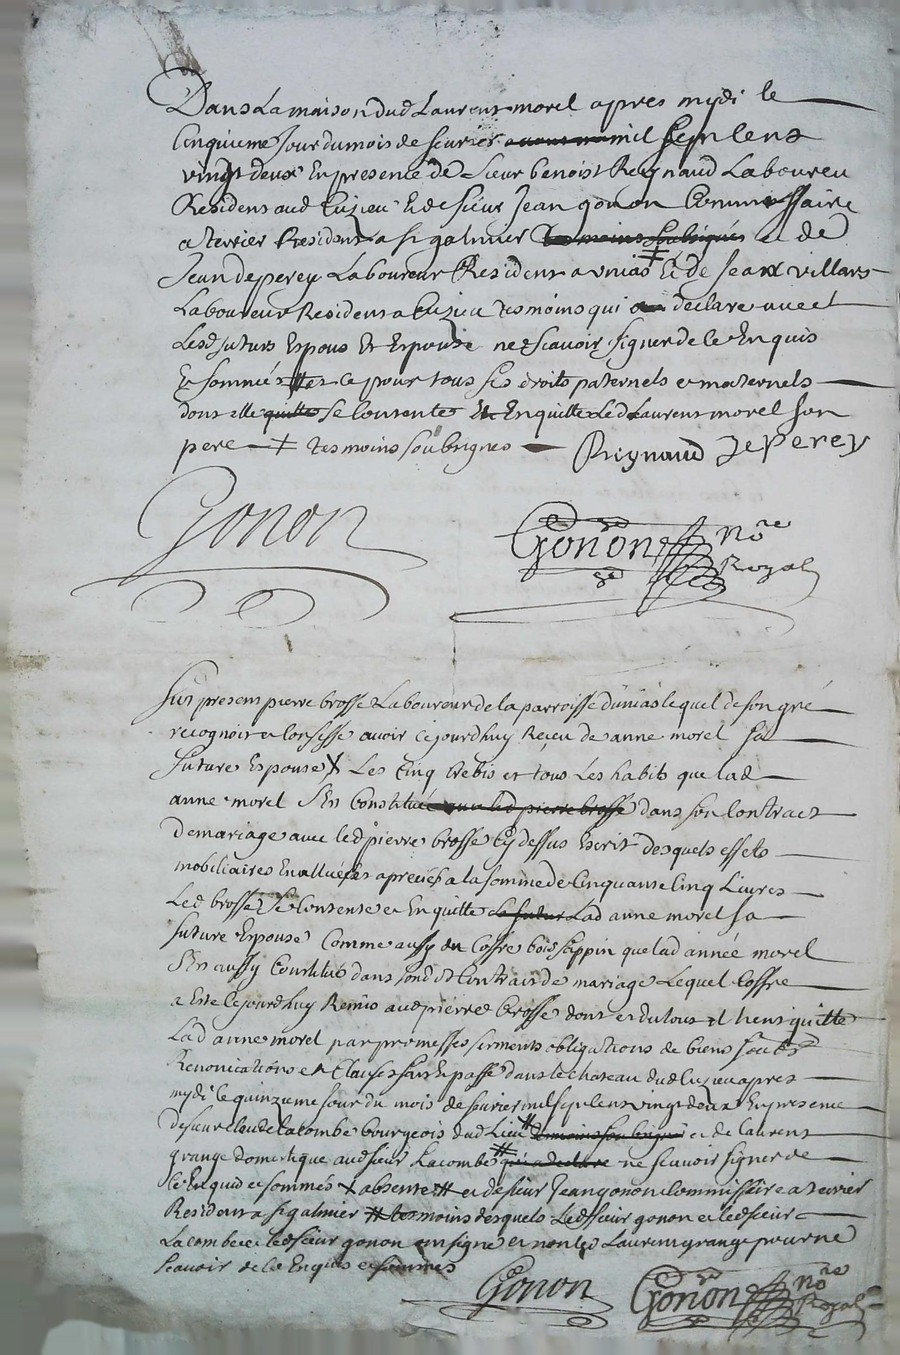 Dans La maison dud Laurent morel apres mydi le
Cinquieme Jour du mois de fevrier mil sept Cens
vingt deux En presence de Sieur benoist Reynaud Laboureu
Resident aud Cuzieu & de sieur Jean gonon Commissaire
a terrier Resident a st galmier et de
Jean deperey Laboureur Resident a unias & de Jean villars
Laboureur Resident a Cuzieu tesmoins qui declare avec
Lesd futurs Espoux Et Espouse ne scavoir signer de ce Enquis
& sommés et ce pour tous ses droits paternels et maternels
dont elle se Contente & Enquitte Led Laurent morel son
pere tesmoins soubsignes Reynaud Deperey
Gonon
Gonon nore
Royal
Fut present pierre brosse Laboureur de la parroisse dunias lequel de son gré
recognoit et Confesse avoir Cejourdhuy Receu de anne morel sa
future Espouse Les Cinq brebis et tous Les habits que lad
anne morel sEst Constituée dans son Contract
de mariage avec led pierre brosse Cy dessus Escrit desquels effets
mobiliaires Evallués et apreciés a la somme de Cinquante Cinq Livres
Led brosse se Contente et Enquitte Lad anne morel sa
future Espouse Comme aussy du Coffre bois sappin que lad anne morel
sEst aussy Constitué dans sond Contrait de mariage Lequel Coffre
a Este Cejourdhuy Remis aud pierre brosse dont et du tout il tient quitte
Lad anne morel par promesses serments obligations de biens
Renonciations et Clauses fait & passé dans le chateau dud Cuzieu apres
mydi le quinzieme Jour du mois de fevrier mil sept Cens vingt deux En presence
de sieur Claude lacombe bourgeois dud Lieu et de Laurent
grange domestique aud sieur Lacombe ne scavoir signer de
Ce Enquis et sommés absente et de sieur Jean gonon Commissaire a terrier
Resident a st galmier tesmoins desquels Led sieur gonon et led sieur
Lacombe et led sieur gonon ont signé et non led Laurent grange pour ne
Scavoir de ce Enquis et sommés
Gonon Gonon nore
Royal